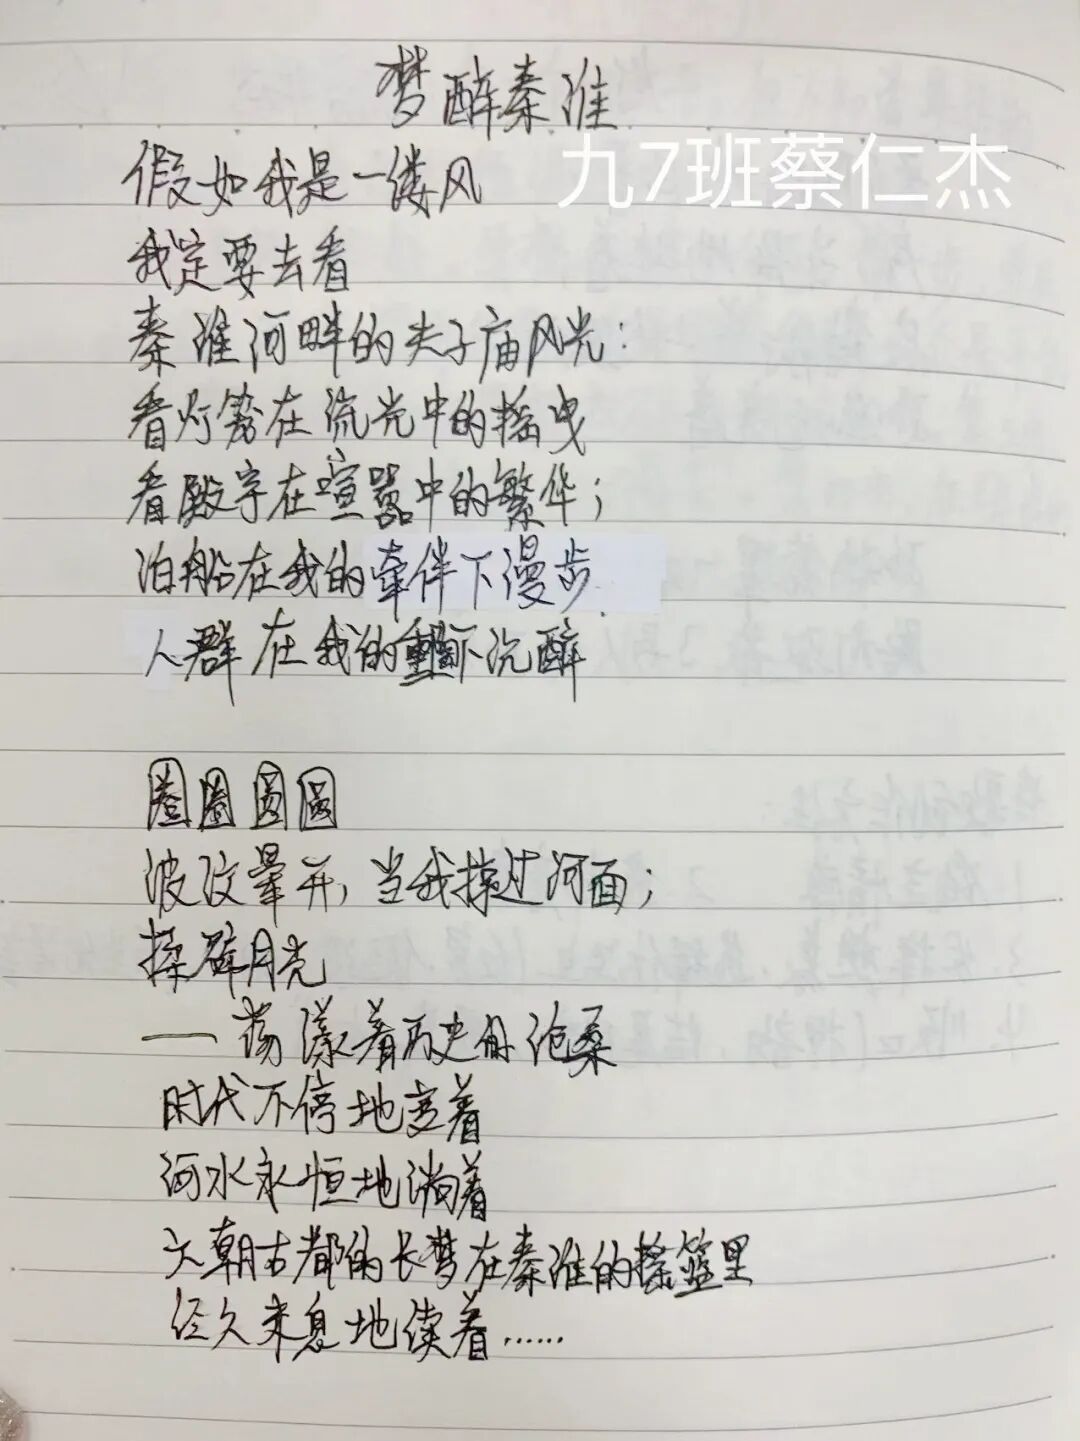 梦醉秦淮
九7班蔡仁杰
假如我是一缕风
我定要去看
秦淮河畔的夫子庙风光：
看灯笼在流光中的摇曳
看殿宇在喧嚣中的繁华；
泊船在我的牵伴下漫步
人群在我的下沉醉
圈圈圆圆
波纹晕开，当我掠过河面；
揉碎月亮
——荡漾着历史的沧桑
时代不停地变着
河水永恒地淌着
六朝古都的长梦在秦淮的摇篮里
经久未息地续着……